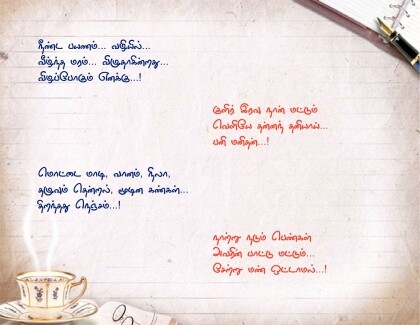 நீண்ட பயணம்... வழியில்...
வீழ்ந்த மரம்... விழுதாகின்றது...
விழப்போகும் எனக்கு...!
குளிர் இரவு நான் மட்டும்
வெளியே தன்னந் தனியாய்...
பனி மனிதன்...!
மொட்டை மாடி, வானம், நிலா,
தழுவும் தென்றல், மூடின கண்கள்...
திறந்தது நெஞ்சம்...!
நாற்று நடும் பெண்கள்
அவரின் பாட்டு மட்டும்...
சேற்று மண் ஒட்டாமல்...!